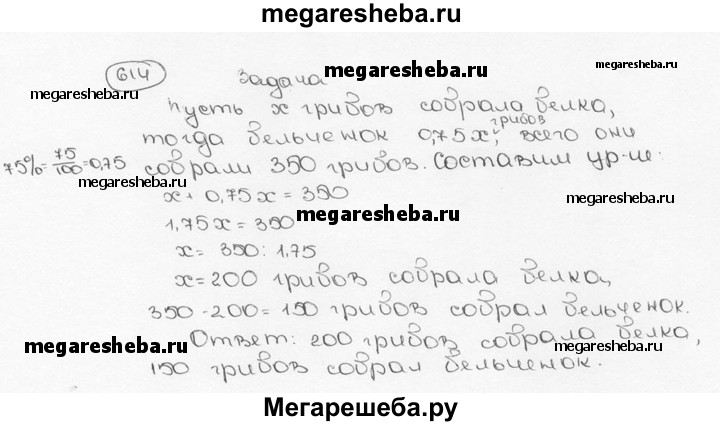 megaresheba.ru
614 Задача megaresheba.ru
megaresheba.ru Пусть x грибов собрала белка,
тогда бельчёнок 0,75x грибов, всего они megaresheba.ru
75%=75/100=0,75 собрали 350 грибов. Составим ур-ие:
megaresheba.ru x + 0,75x = 350 megaresheba.ru
1,75x = 350 megaresheba.ru
x = 350 : 1,75
x = 200 грибов собрала белка,
350 - 200 = 150 грибов собрал бельченок.
Ответ: 200 грибов собрала белка,
megaresheba.ru megaresheba.ru
150 грибов собрал бельченок.
Мегарешеба.ру